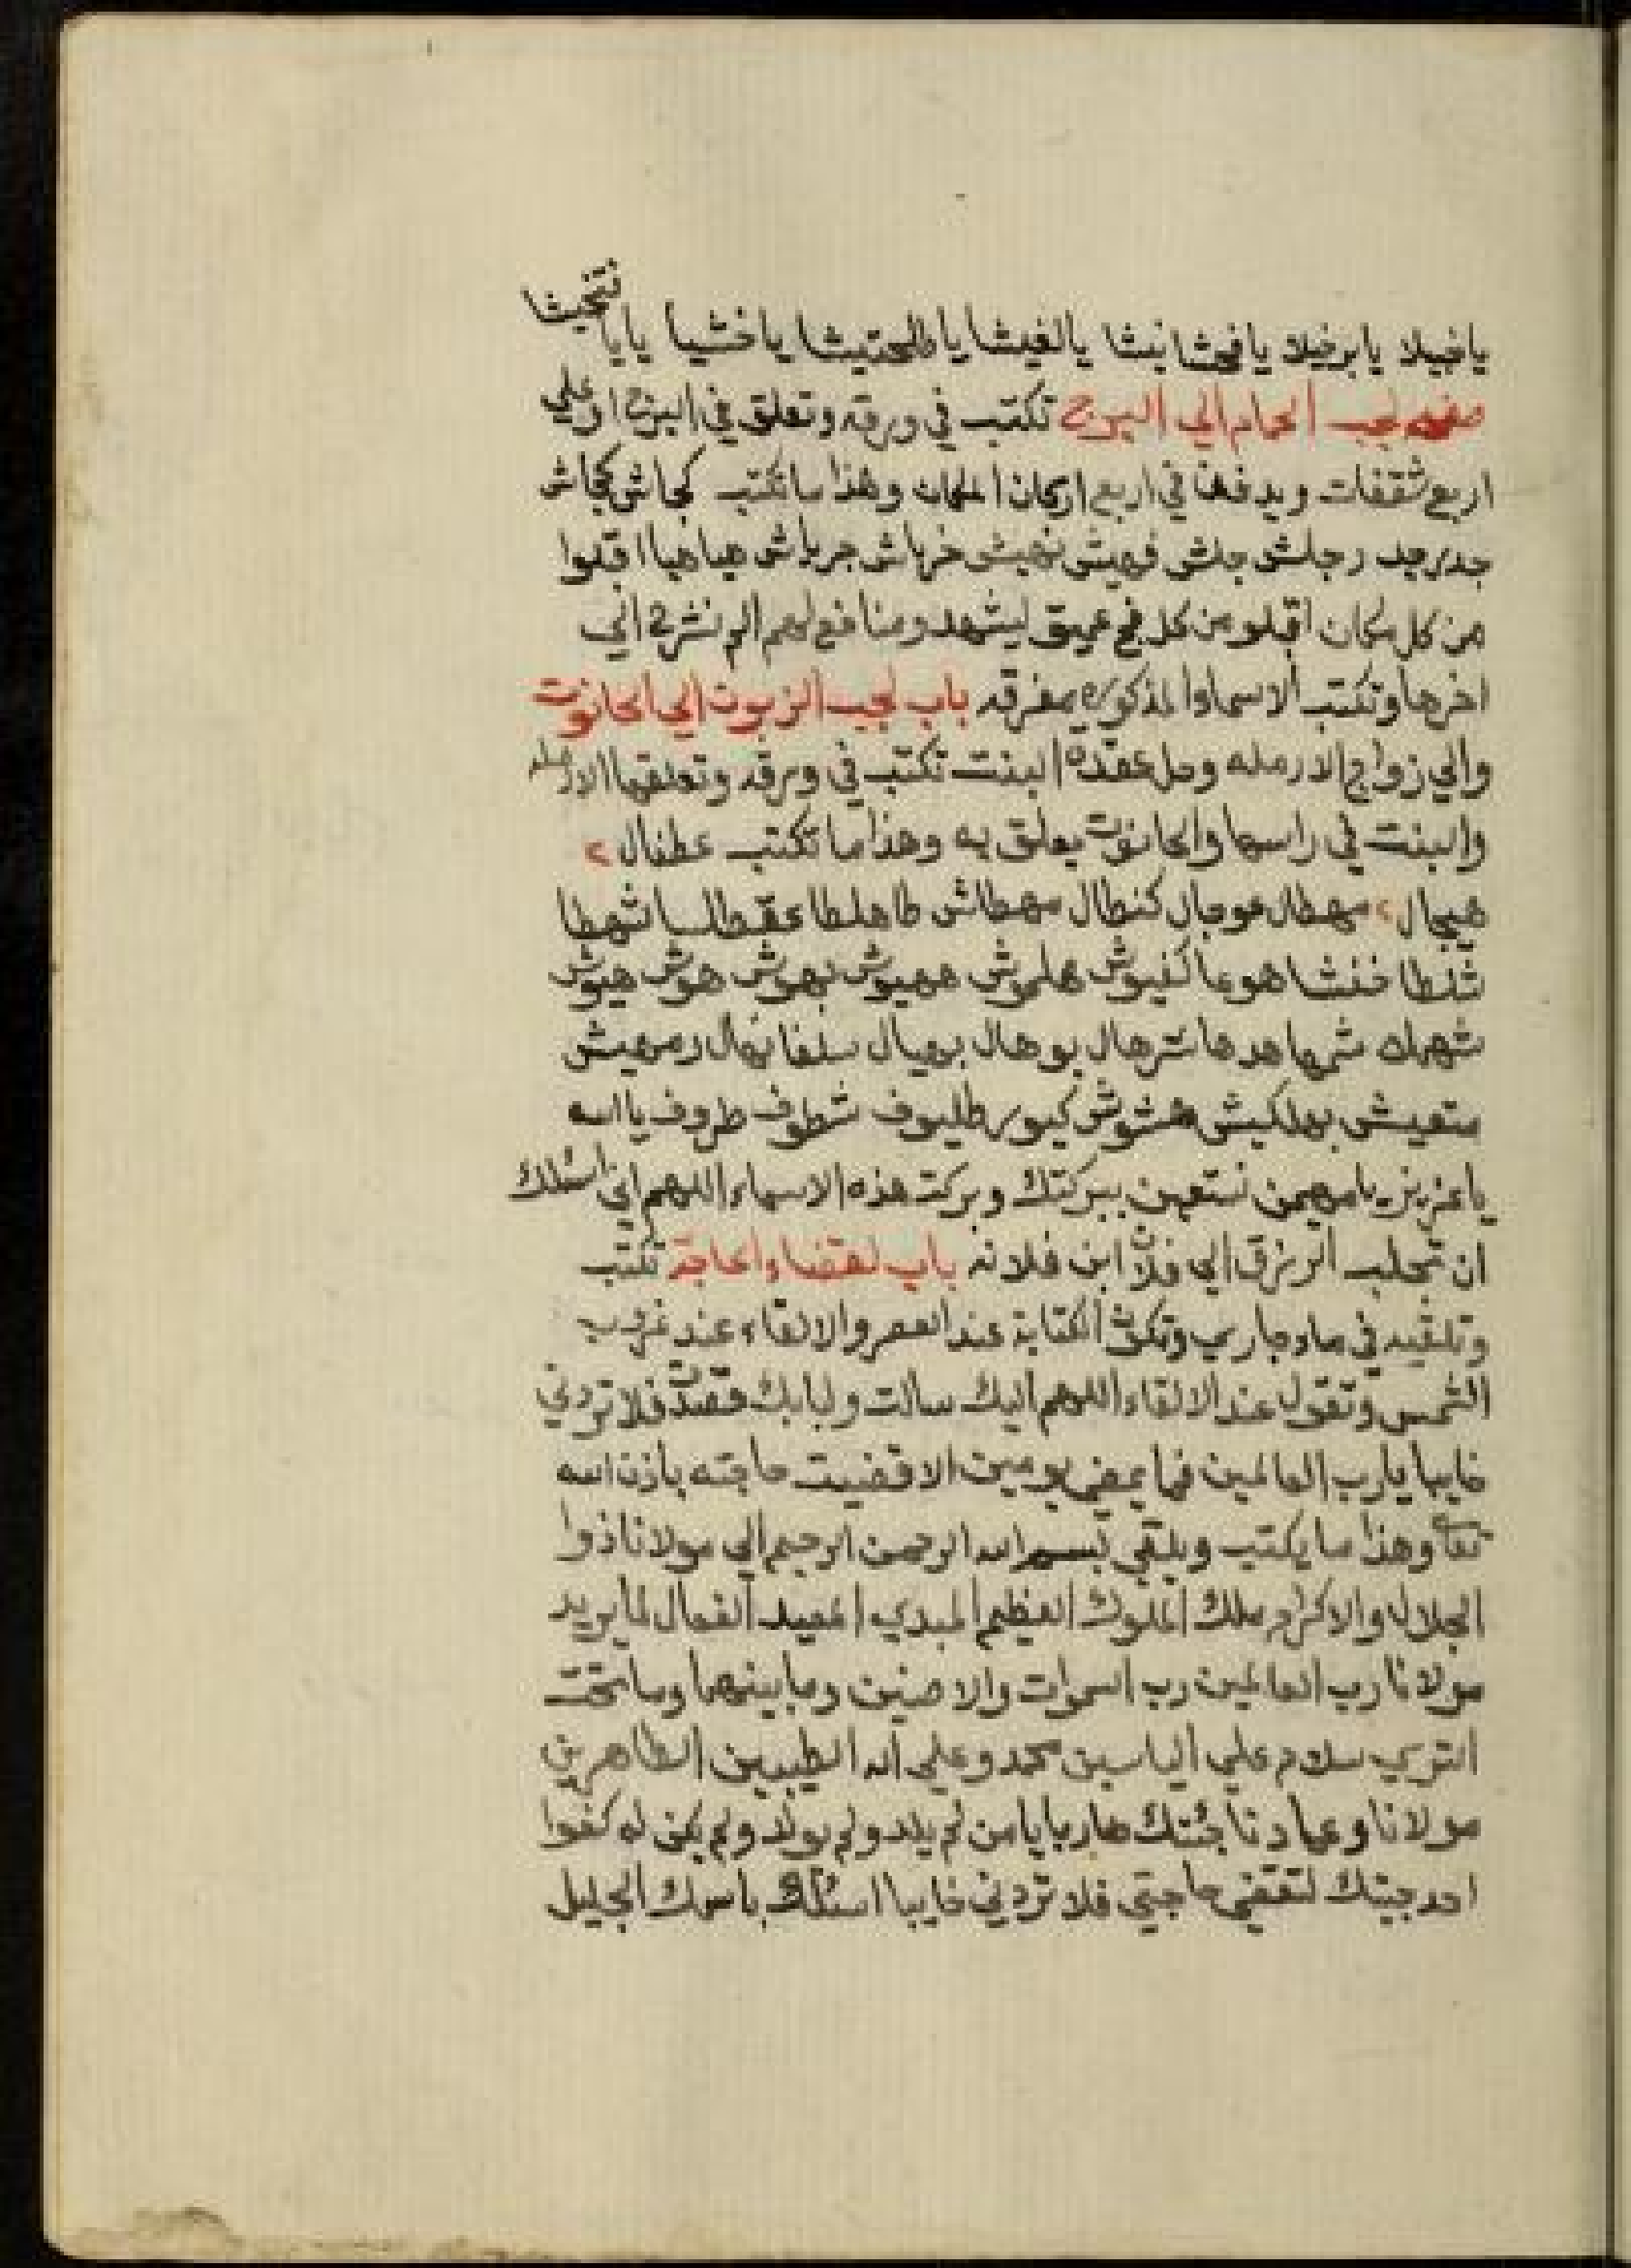 ياخيلا يابرخيلا يا يالغيشا ياخشيا يايا
صفه لجيب الحمام الي البرج تكتب في ورقه وتعلق في البرج او علي
اربع شقفات ويدفن في اربع اركان المكان وهذا ما تكتب كجاش كجاش
رجلش جلش فهيش نهيش خرباش جرباش هيا هيا اقبلوا
من كل مكان اقبلو من كل فج عميق ليشهدو منافع لهم الم نشرح الي
اخرها وتكتب الاسماء المذكوره مفرقه باب لجيب الزبون الي الحانوت
والي زواج الارمله وحل عقدة البنت تكتب في ورقه وتعلقها الارمله
والبنت في راسها والحانوت يعلق به وهذا ما تكتب عطفال ٢
هيجال ٢ مهطال هوجال كنطال مهطاش طاهلطا
شنطا خنشا هوعا كفيوش هلموش ههيوش بهوش هوش هيوش
شرهال بوهال برهيال
كيور طليوف شطوف طروف يا الله
يا عزيز يا مهيمن نستعين ببركتك وبركت هذه الاسماء اللهم اني اسئلك
ان تجلب الرزق الي فلان ابن فلانه باب لقضاء الحاجة تكتب
وتلقيه في ماء جاري وتكون الكتابة عند العصر والالقاء عند غروب
الشمس وتقول عند الالقاء اللهم اليك سالت ولبابك قصدت فلا تردني
خايبا يارب العالمين فما يمضي يومين الا قضيت حاجته باذن الله
تعا وهذا ما يكتب ويلقي بسم الله الرحمن الرحيم الي مولانا ذوا
الجلال والاكرام ملك الملوك العظيم المبدي المعيد الفعال لما يريد
مولانا رب العالمين رب السموات والارضين وما بينهما وما تحت
الثري سلام علي الياسين محمد وعلي اله الطيبين الطاهرين
مولانا وعمادنا جئتك هاربا يا من لم يلد ولم يولد ولم يكن له كفوا
احد جيتك لتقضي حاجتي فلا تردني خايبا اسئلك باسمك الجليل